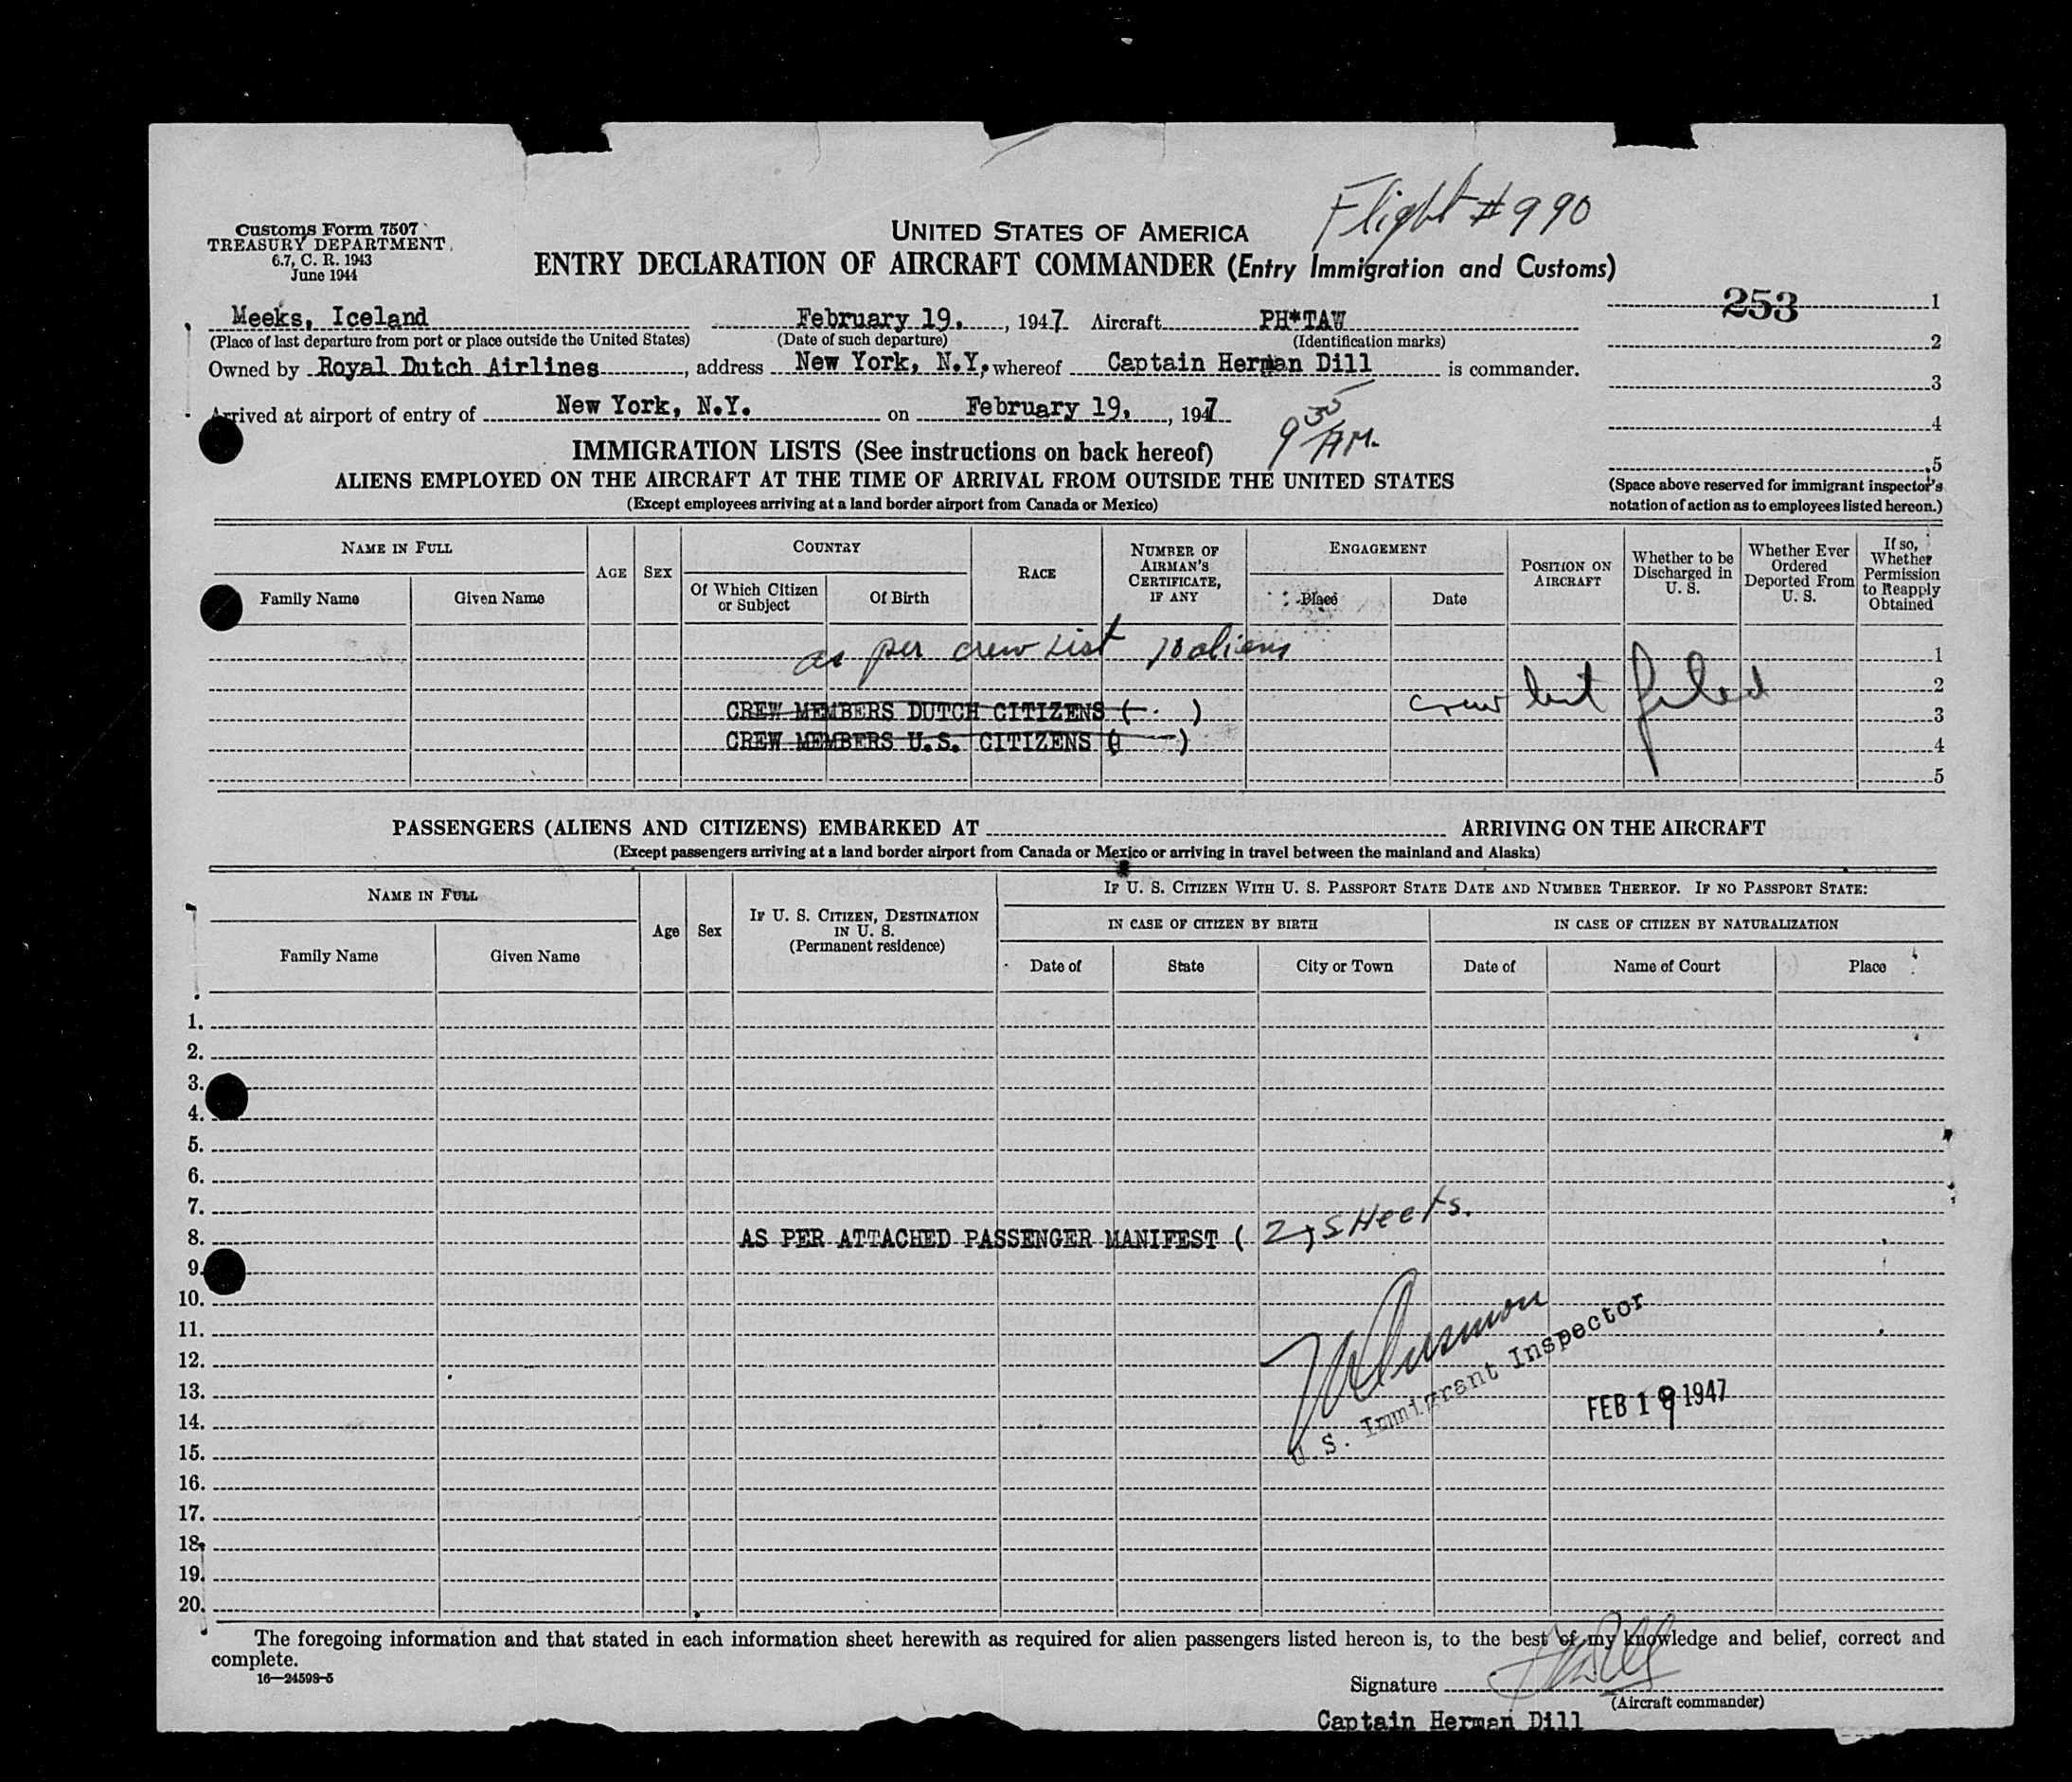 Flight #990
Customs Form 7507
TREASURY DEPARTMENT
6.7, C. R. 1943
June 1944
UNITED STATES OF AMERICA
ENTRY DECLARATION OF AIRCRAFT COMMANDER (Entry Immigration and Customs)
253 1
Meeks, Iceland February 19, , 1947 Aircraft PH*TAW
(Place of last departure from port or place outside the United States) (Date of such departure) (Identification marks)
2
Owned by Royal Dutch Airlines , address New York, N.Y. whereof Captain Herman Dill is commander.
3
Arrived at airport of entry of New York, N.Y. on February 19, , 1947
9 30 AM.
4
5
IMMIGRATION LISTS (See instructions on back hereof)
ALIENS EMPLOYED ON THE AIRCRAFT AT THE TIME OF ARRIVAL FROM OUTSIDE THE UNITED STATES
(Except employees arriving at a land border airport from Canada or Mexico)
(Space above reserved for immigrant inspector's
notation of action as to employees listed hereon.)
NAME IN FULL
Family Name
Given Name
AGE
SEX
COUNTRY
Of Which Citizen
or Subject
Of Birth
RACE
NUMBER OF
AIRMAN'S
CERTIFICATE,
IF ANY
ENGAGEMENT
Place
Date
POSITION ON
AIRCRAFT
Whether to be
Discharged in
U. S.
Whether Ever
Ordered
Deported From
U. S.
If so,
Whether
Permission
to Reapply
Obtained
as per crew List 10 aliens 1
2
crew list filed
CREW MEMBERS DUTCH CITIZENS ( ) 3
CREW MEMBERS U.S. CITIZENS ( ) 4
5
PASSENGERS (ALIENS AND CITIZENS) EMBARKED AT ARRIVING ON THE AIRCRAFT
(Except passengers arriving at a land border airport from Canada or Mexico or arriving in travel between the mainland and Alaska)
NAME IN FULL
Family Name
Given Name
Age
Sex
IF U. S. CITIZEN, DESTINATION
IN U. S.
(Permanent residence)
IF U. S. CITIZEN WITH U. S. PASSPORT STATE DATE AND NUMBER THEREOF. IF NO PASSPORT STATE:
IN CASE OF CITIZEN BY BIRTH
IN CASE OF CITIZEN BY NATURALIZATION
Date of
State
City or Town
Date of
Name of Court
Place
1.
2.
3.
4.
5.
6.
7.
8. AS PER ATTACHED PASSENGER MANIFEST ( 2 ) SHeets.
9.
10.
11.
12.
13.
14.
15.
16.
17.
18.
19.
20.
U.S. Immigrant Inspector
FEB 19 1947
The foregoing information and that stated in each information sheet herewith as required for alien passengers listed hereon is, to the best of my knowledge and belief, correct and
complete.
16—24598-5
Signature
(Aircraft commander)
Captain Herman Dill